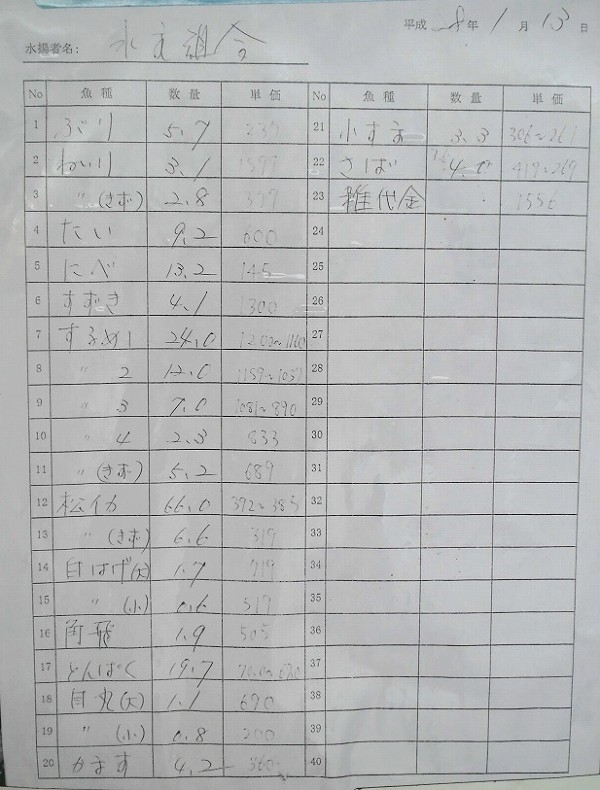 平成 28年 1月 13日
水揚者名: 水主組合
No 魚種 数量 単価 No 魚種 数量 単価
1 ぶり 5.7 237 21 小すま 3.3 306~261
2 ねいり 3.1 1599 22 さば 419~269
3 〃(きず) 2.8 23 雑代金 1556
4 たい 9.2 600 24
5 にべ 13.2 145 25
6 すずき 4.1 1300 26
7 するめ 24.0 1200~1160 27
8 〃 2 12.0 1159~1057 28
9 〃 3 7.0 1081~890 29
10 〃 4 2.3 833 30
11 〃(きず) 5.2 689 31
12 松イカ 66.0 392~385 32
13 〃(きず) 6.6 319 33
14 白はげ(大) 1.7 719 34
15 〃(小) 0.6 519 35
16 角飛 1.9 505 36
17 とんぼく 19.7 37
18 目丸(大) 1.1 690 38
19 〃(小) 0.8 200 39
20 かます 4.2 360 40